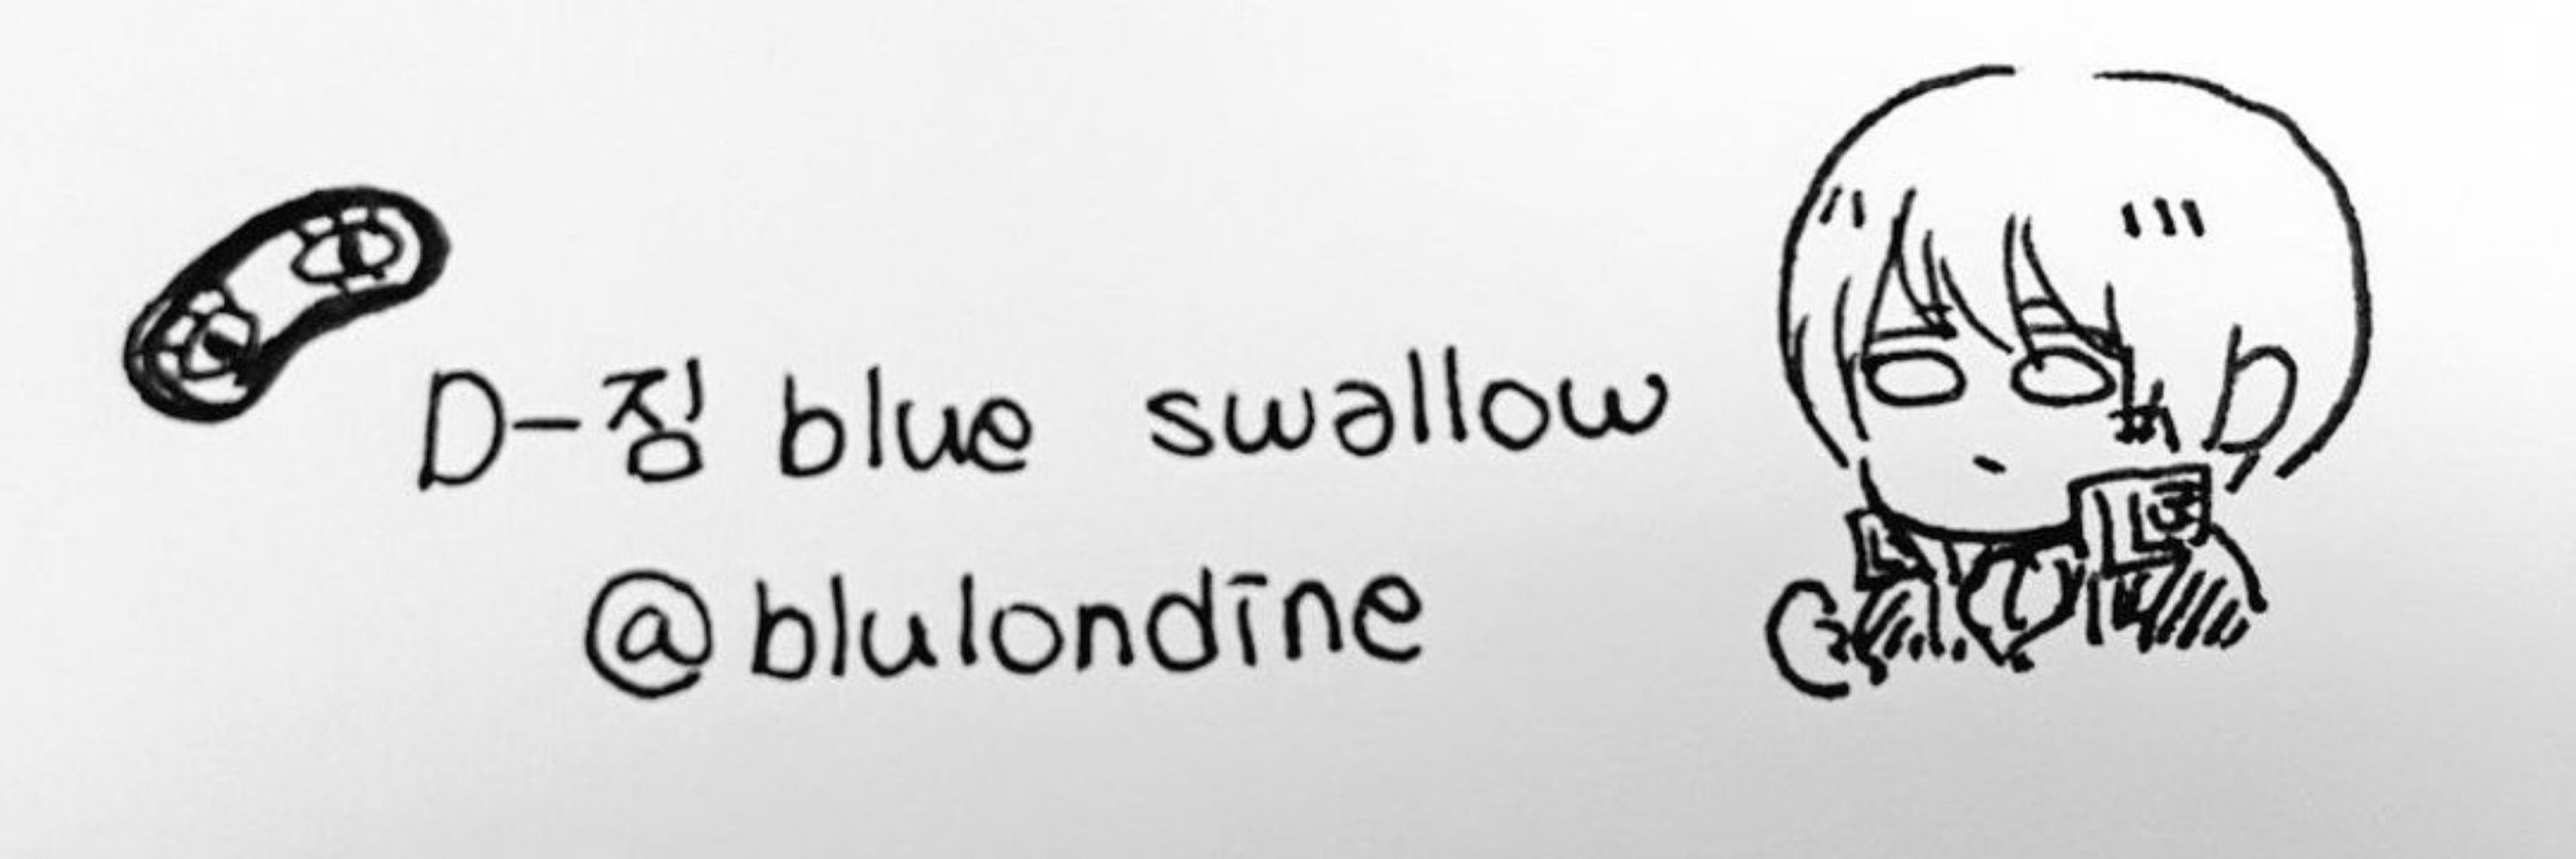 D-짐 blue swallow
@blulondine